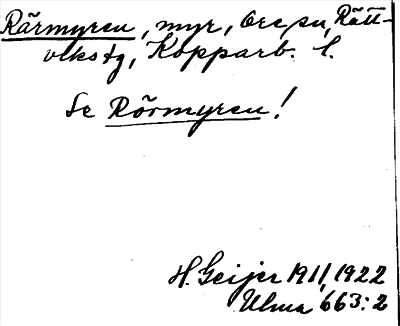 Rärmyren, myr, Ore sn, Rätt-
vikstg, Kopparb. l.
Se Rörmyren!
H. Geijer 1911, 1922
Ulma 663:2